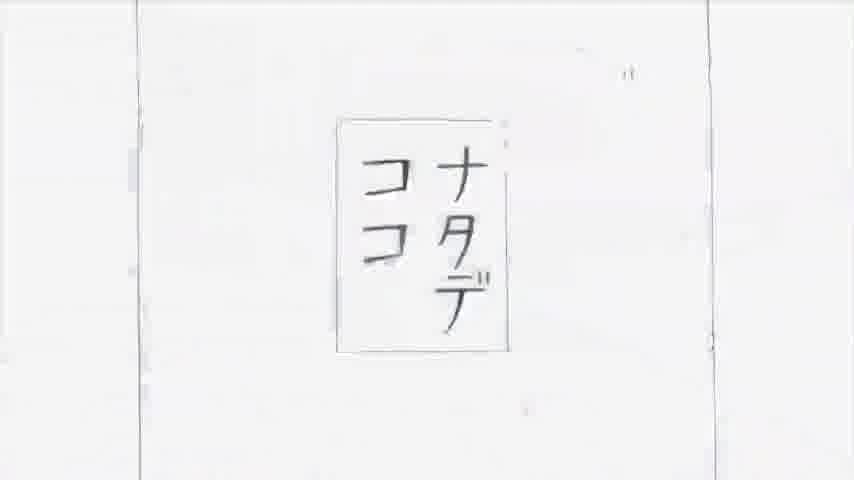 ナタデ
ココ